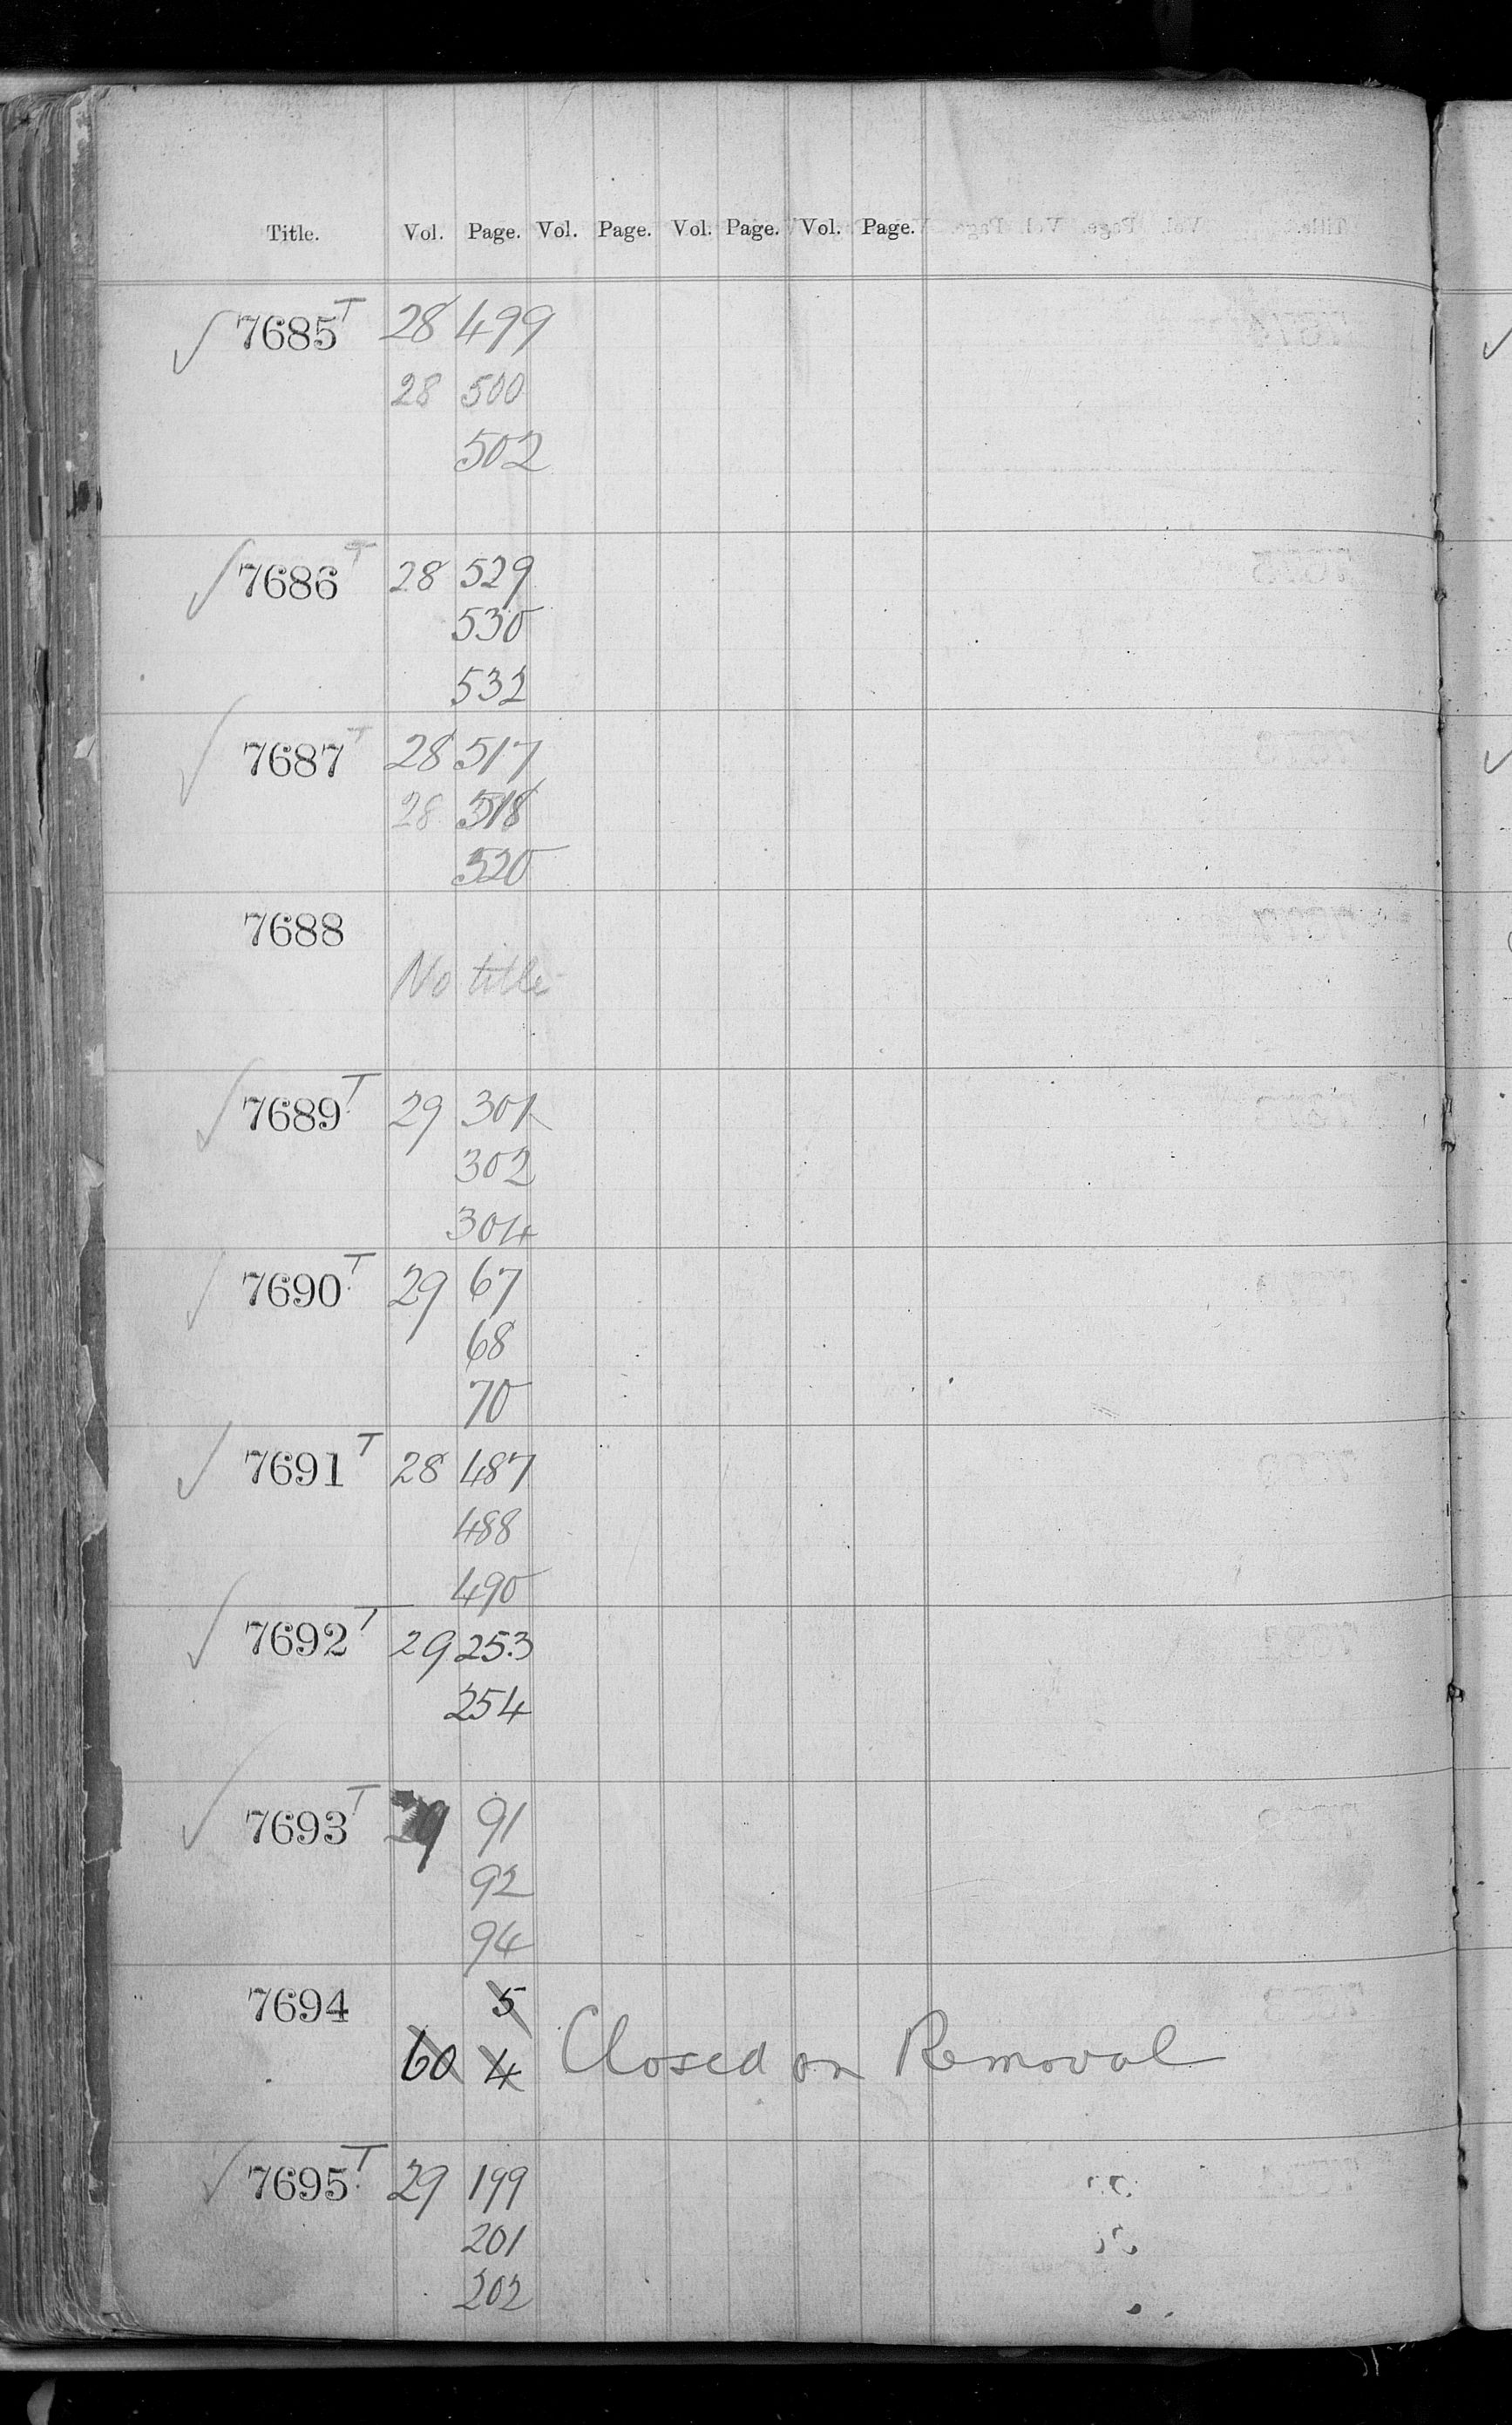 Title. Vol. Page. Vol. Page. Vol. Page. Vol. Page.
✓ 7685 T 28 499
28 500
502
✓ 7686 T 28 529
530
532
✓ 7687 T 28 517
28 518
520
7688
No title
✓ 7689 T 29 301
302
304
✓ 7690 T 29 67
68
70
✓ 7691 T 28 487
488
490
✓ 7692 T 29 253
254
✓ 7693 T 29 91
92
94
7694 5
60 4 Closed on Removal
✓ 7695 T 29 199
201
202